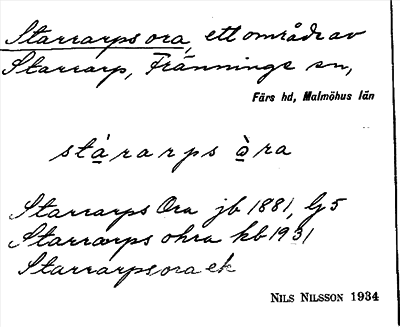 Starrarps ora, ett område av
Starrarp, Tränninge sn,
Färs hd, Malmöhus län
stàrarps òra
Starrarps Ora jb 1881, lj 5
Starrarps ohra kb 1931
Starrarpsora ek
NILS NILSSON 1934